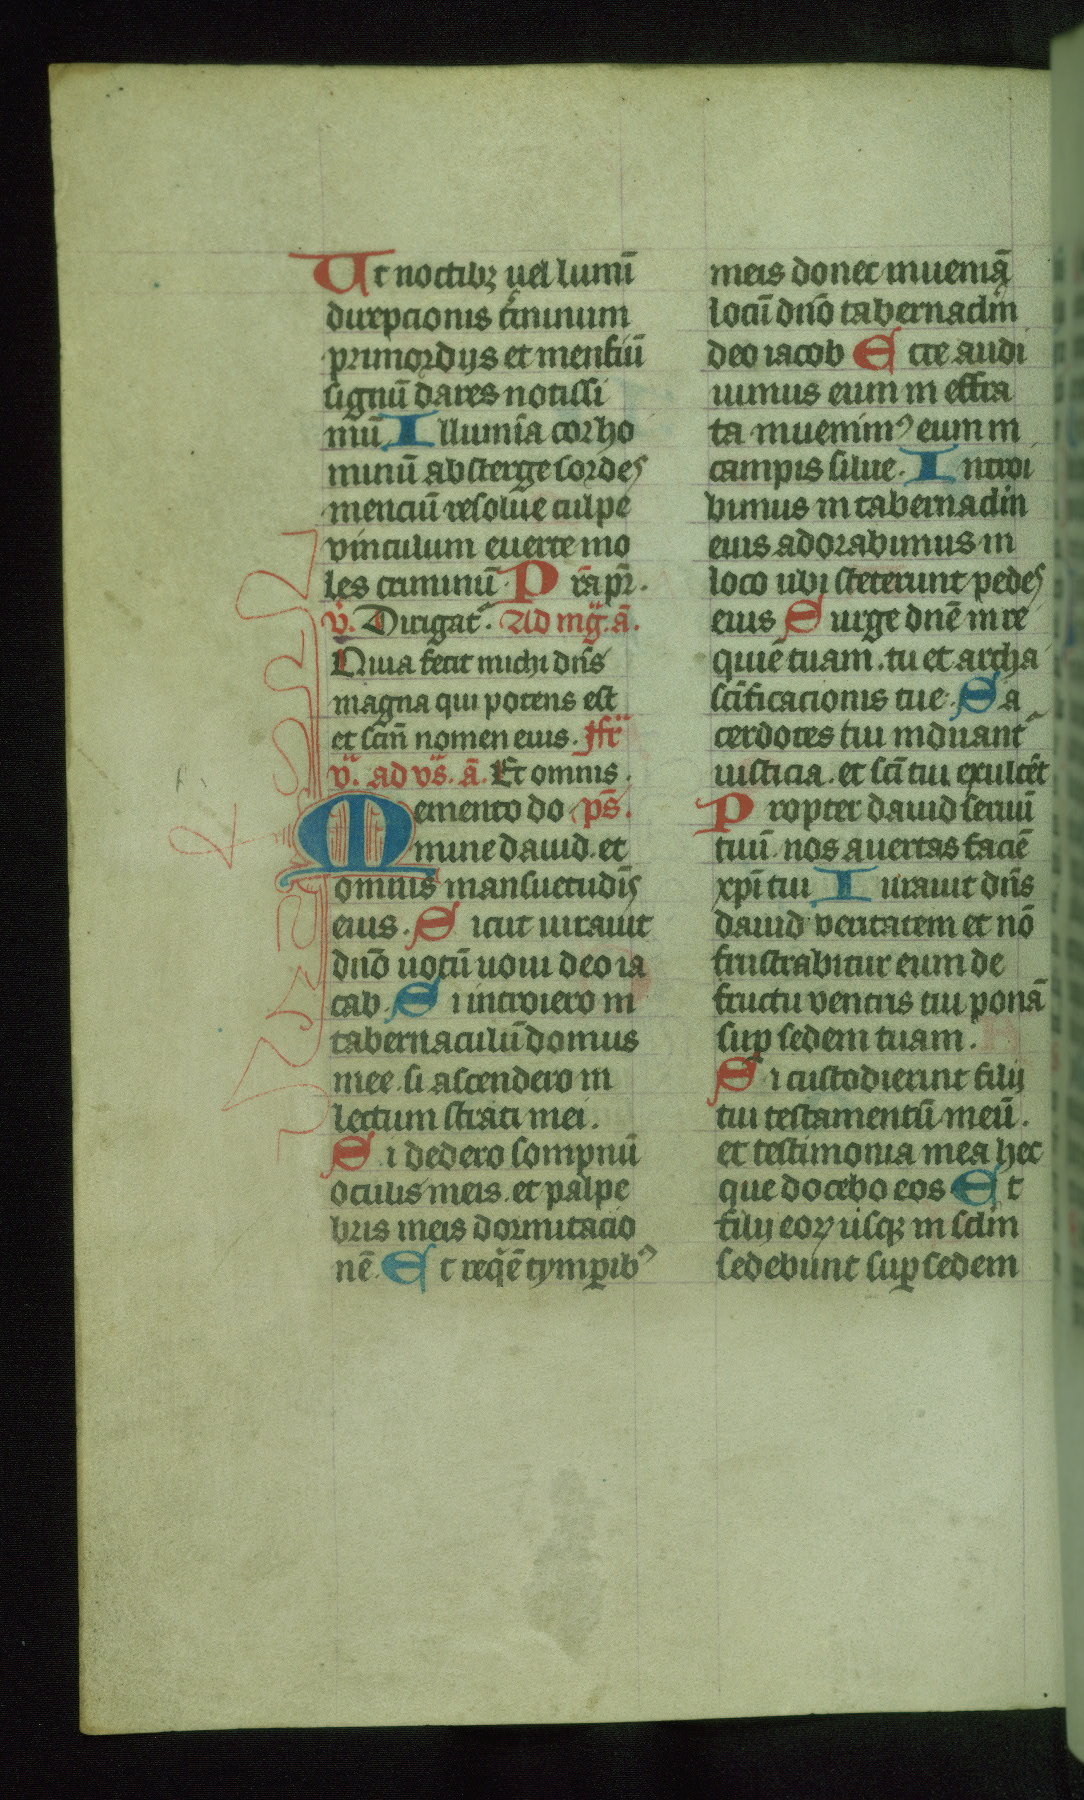 Ut noctibꝫ uel lumī
direpcionis tͥminum
primordijs et mensiū
signū dares notissi
mū Illumīa cor ho
minū absterge sordes
menciū resolue culpe
vinculum euerte mo
les criminū P ra pr̄.
v̄. Dirigatᷣ. Ad mḡ. ā.
Quia fecit michi dn̄s
magna qui potens est
et scm̄ nomen eius. ffr̄
v̄. ad vs̄. ā. Et omnis.
Memento do ps̄.
mine dauid. et
omnis mansuetudīs
eius. Sicut iurauit
dn̄o uotū uoui deo ia
cab. Si introiero in
tabernaculū domus
mee. si ascendero in
lectum strati mei.
Si dedero sompnū
oculis meis. et palpe
bris meis dormitacio
nē. Et req̄ē tympꝑibꝰ
meis donec inueniā
locū dn̄o tabernaclm̄
deo iacob Ecce audi
uimus eum in effra
ta inuenimꝰ eum in
campis silue. Introi
bimus in tabernaclm̄
eius adorabimus in
loco ubi steterunt pedes
eius Surge dn̄e in re
quiē tuam. tu et archa
scīficacionis tue. Sa
cerdotes tui induantᷣ
iusticia. et scī tui exultēt
Propter dauid seruū
tuū. nos auertas faciē
xpī tui Iurauit dn̄s
dauid veritatem et nō
frustrabitur eum de
fructu ventris tui ponā
suꝑ sedem tuam.
Si custodierint filij
tui testamentū meū.
et testimonia mea hec
que docebo eos Et
filij eoꝝ usqꝫ in sclm̄
sedebunt suꝑ sedem